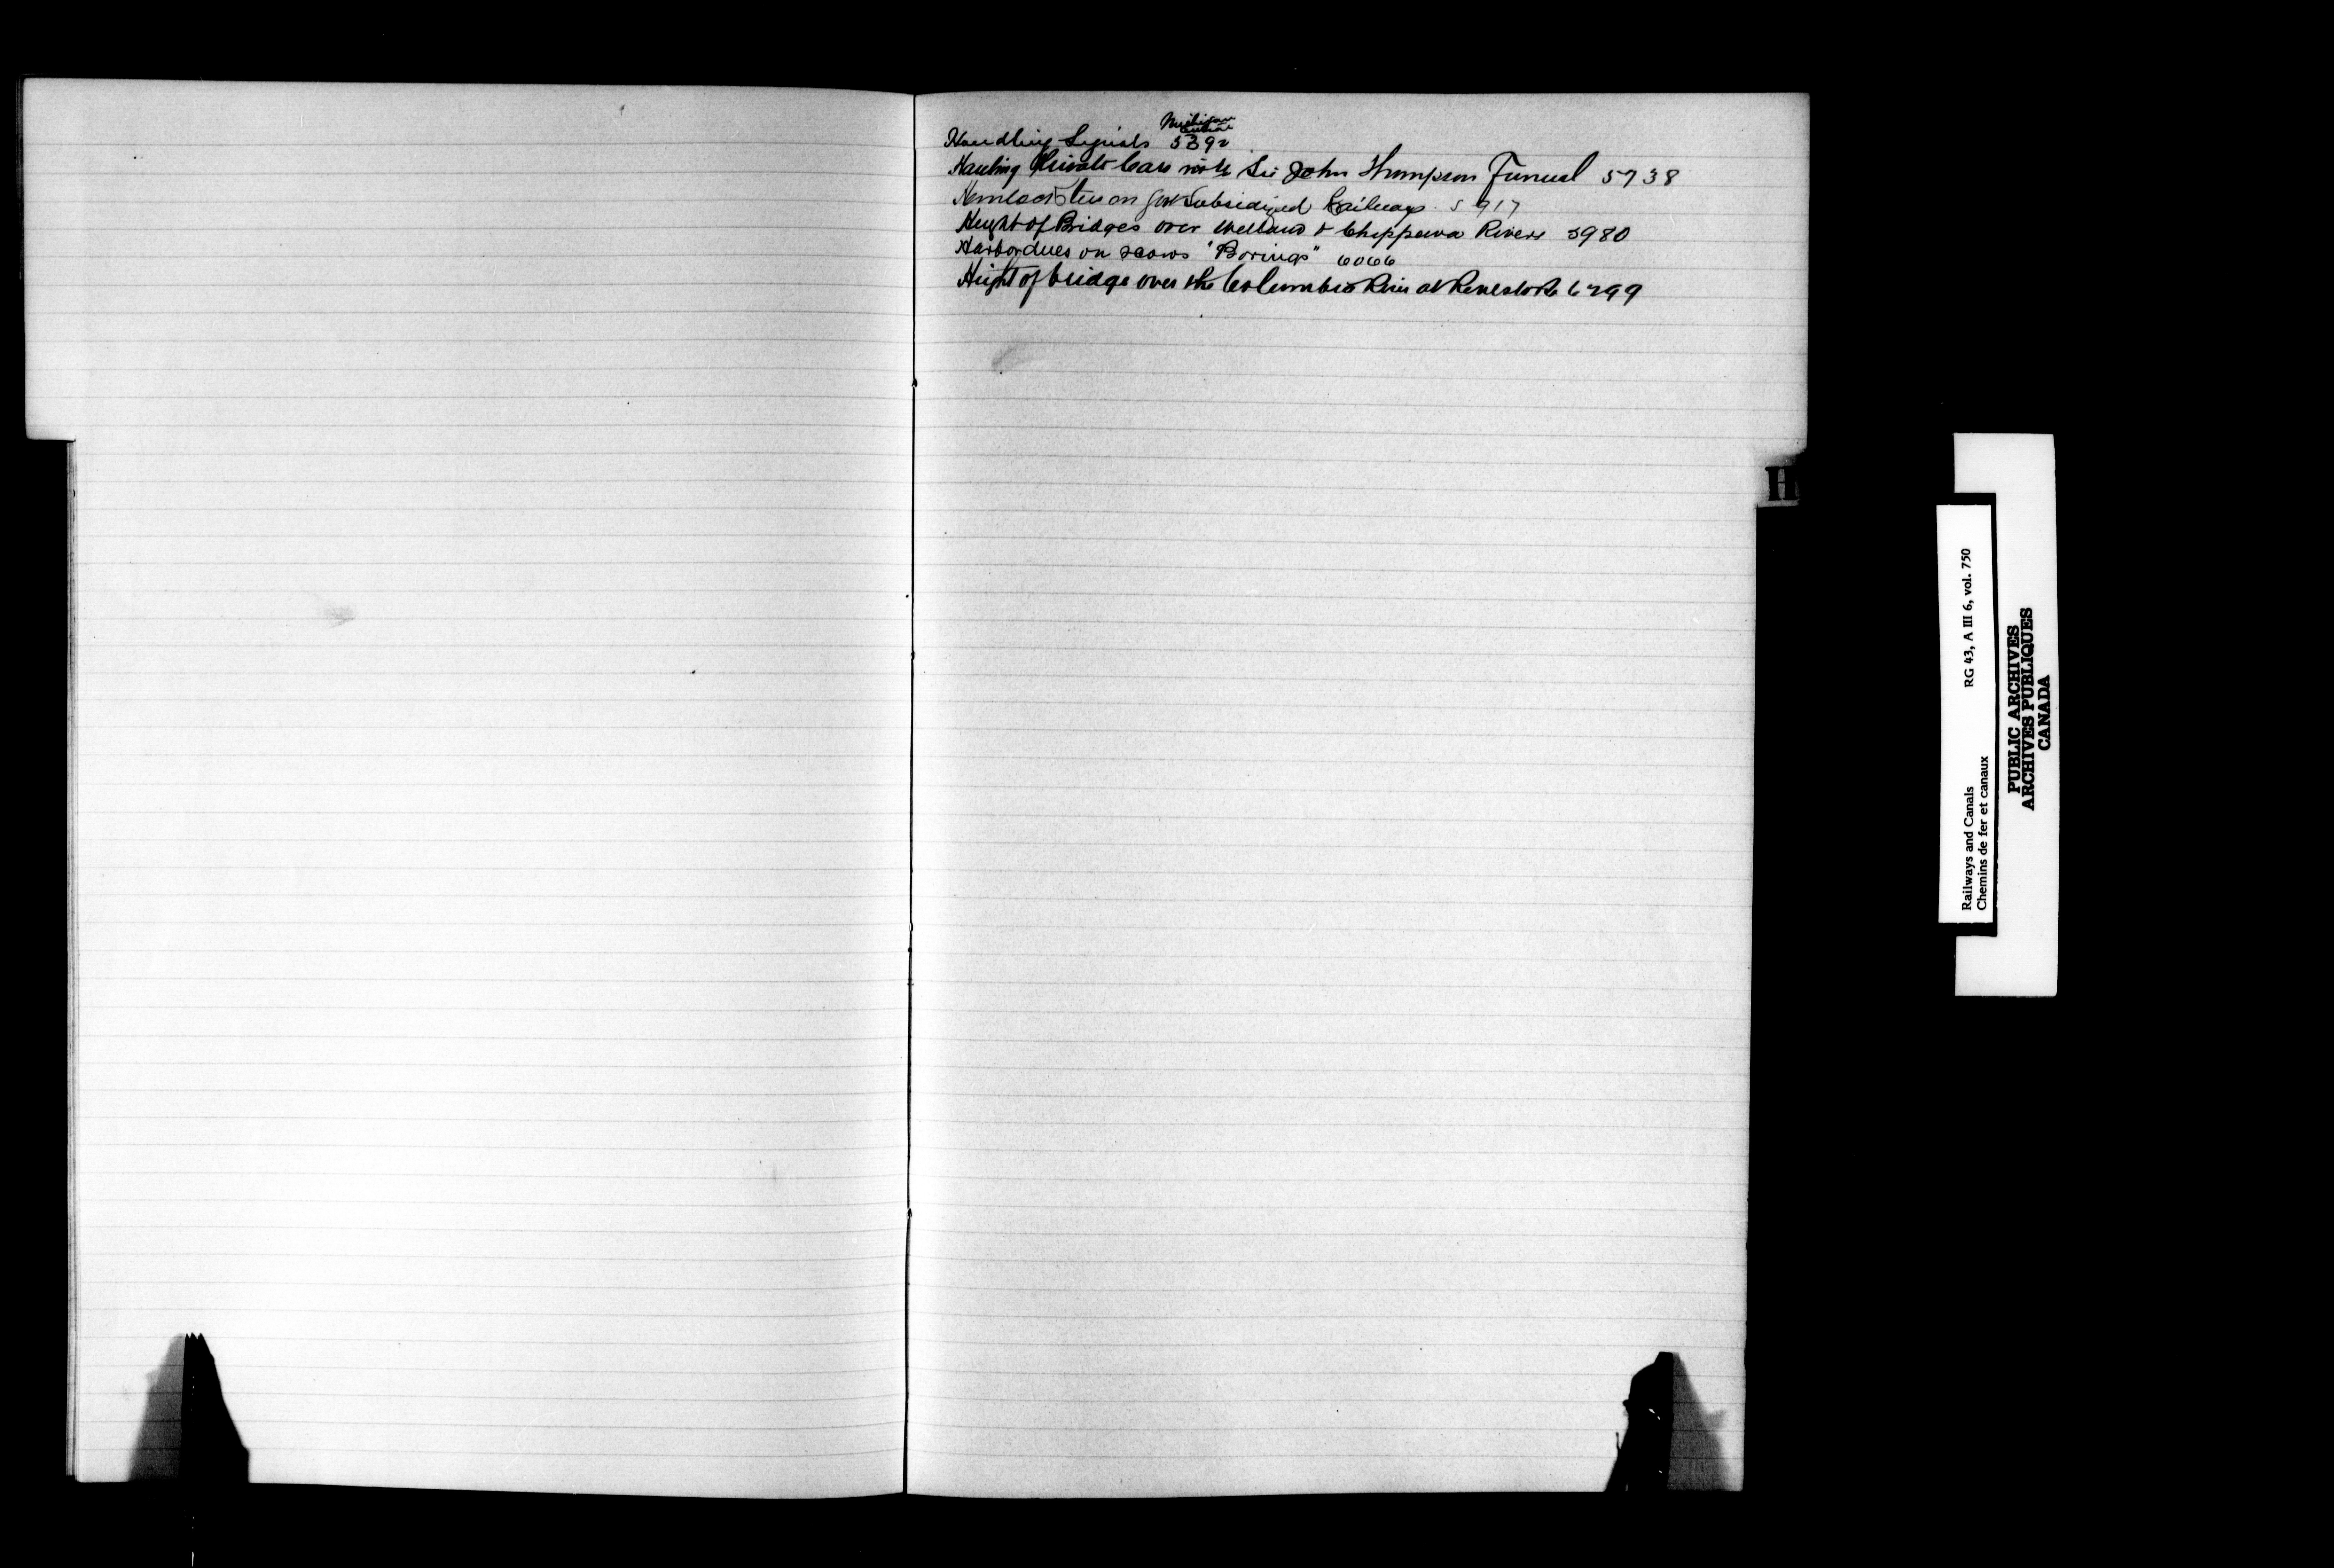 Michigan
Central
Handling Signals 5392
Hauling Private Cars with Sir John Thompson Funeral 5738
Hemlock Ties on Govt Subsidized Railways 5917
Height of Bridges over Welland & Chippawa Rivers 5980
Harbor dues on scows "Borings" 6066
Height of bridge over the Columbia River at Revelstoke 6299
H
Railways and Canals RG 43, A III 6, vol. 750
Chemins de fer et canaux
PUBLIC ARCHIVES
ARCHIVES PUBLIQUES
CANADA